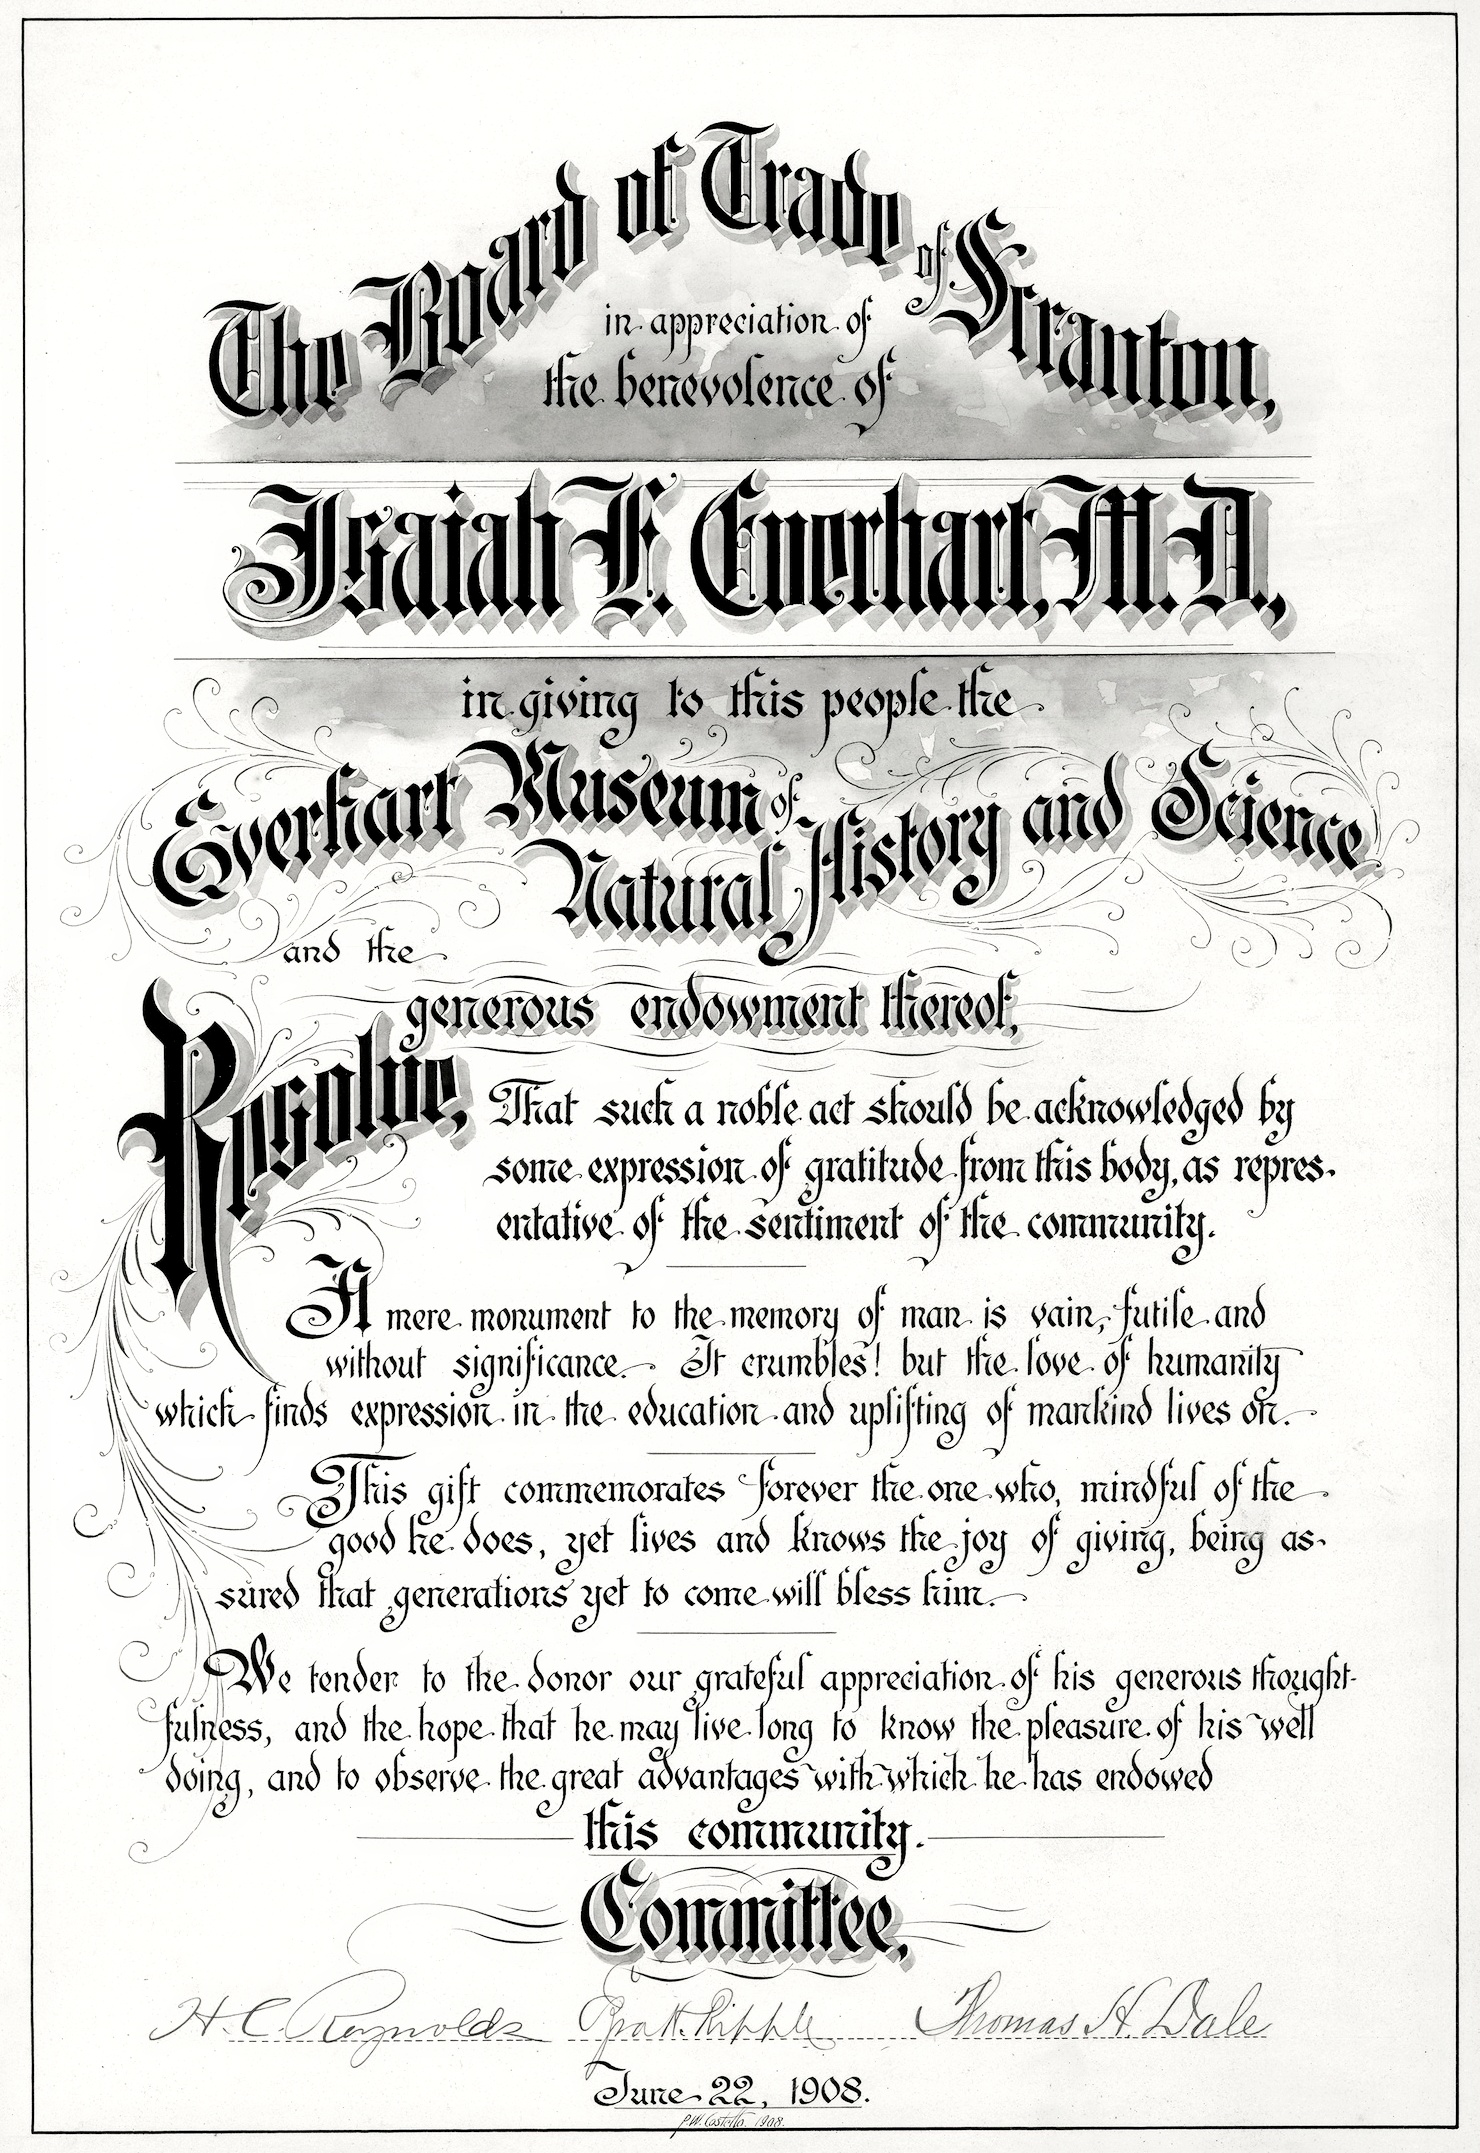 The Board of Trade of Scranton,
in appreciation of
the benevolence of
Isaiah F. Everhart, M.D.,
in giving to this people the
Everhart Museum of
Natural History and Science
and the
generous endowment thereof,
Resolve,
That such a noble act should be acknowledged by
some expression of gratitude from this body, as repres-
entative of the sentiment of the community.
A mere monument to the memory of man is vain, futile and
without significance. It crumbles! but the love of humanity
which finds expression in the education and uplifting of mankind lives on.
This gift commemorates forever the one who, mindful of the
good he does, yet lives and knows the joy of giving, being as-
sured that generations yet to come will bless him.
We tender to the donor our grateful appreciation of his generous thought-
fulness, and the hope that he may live long to know the pleasure of his well
doing, and to observe the great advantages with which he has endowed
this community.
Committee,
H. C. Reynolds Ezra H. Ripple Thomas H. Dale
June 22, 1908.
P.W. Costello. 1908.